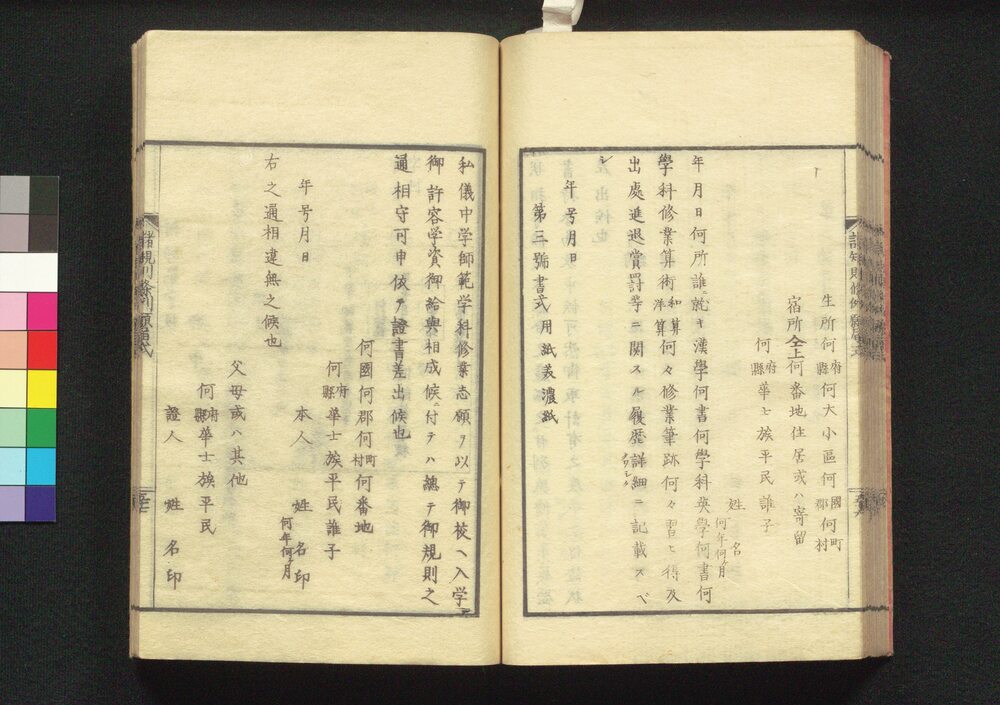 生所何府縣何大小區何國郡何町村
宿所仝上何番地住居或ハ寄留
何府縣華士族平民誰子
姓名
何年何ヶ月
年月日何所誰ニ就キ漢學何書何學科英學何書何
學科修業算術和算洋算何々修業筆跡何々習ヒ得及
出處進退賞罰等ニ関スル履歴詳細ニ記載スベ
シ
年号月日
第三號書式用紙美濃紙
私儀中学師範学科修業志願ヲ以テ御校ヘ入学
御許容学資御給與相成候ニ付テハ總テ御規則之
通相守可申依テ證書差出候也
何國何郡何町村何番地
何府縣華士族平民誰子
本人 姓名印
何年何ヶ月
年号月日
右之通相違無之候也
父母或ハ其他
何府縣華士族平民
證人 姓名印